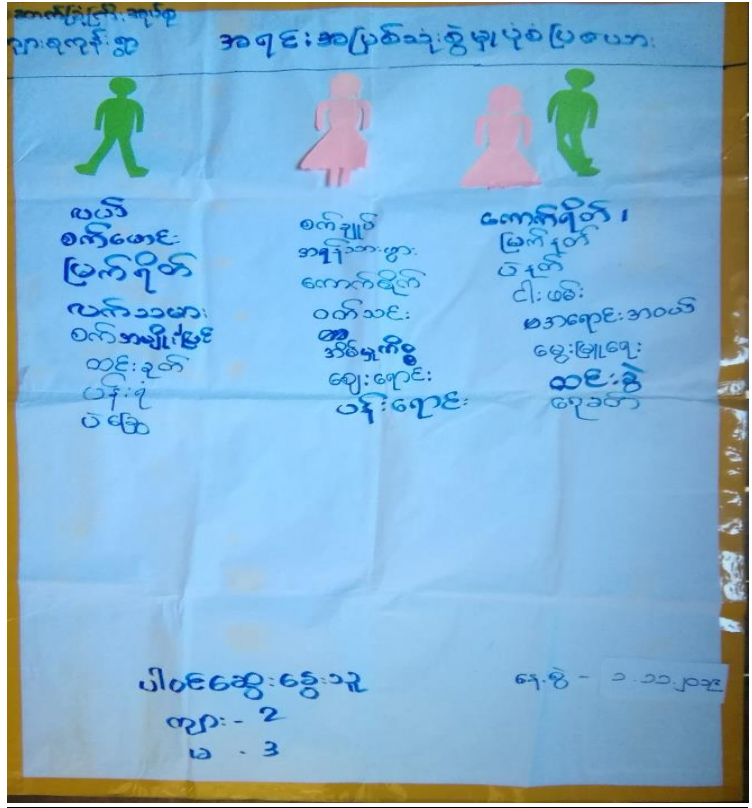 အရင်းအမြစ်သုံးစွဲမှုပုံစံပြဇယား
လယ်
စက်မောင်း
မြက်ရိတ်
လက်သမား
စက်အမျိုးမြင်
ထင်းခုတ်
ပန်းရံ
စက်ချုပ်
ကောက်စိုက်
ဝတ်သင်း
အိမ်မှုကိစ္စ
ဈေးရောင်း
ပန်းရောင်း
ကောက်ရိတ်၊
မြက်နုတ်
ပဲနုတ်
ငါးဖမ်း
အရောင်းအဝယ်
မွေးမြူရေး
ထင်းခွဲ
ရေခပ်
ပါဝင်ဆွေးနွေးသူ
ကျား - 2
မ - 3
နေ့စွဲ - ၁.၁၁.၂၀၁၉